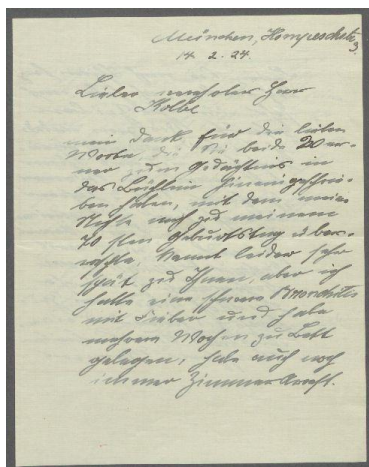 München, Hompeschstr.
3.
14. 2. 24.
Lieber verehrter Herr
Kolbe
mein Dank für die lieben
Worte die Sie beide Wer-
ner zum Gedächtnis in
das Büchlein hineingeschrie-
ben haben, mit dem meine
Nichte mich zu meinem
70sten Geburtstag über-
raschte, kommt leider sehr
spät zu Ihnen, aber ich
hatte eine schwere Bronchitis
mit Fieber und habe
mehrere Wochen zu Bett
gelegen, habe auch noch
immer Zimmerarrest.